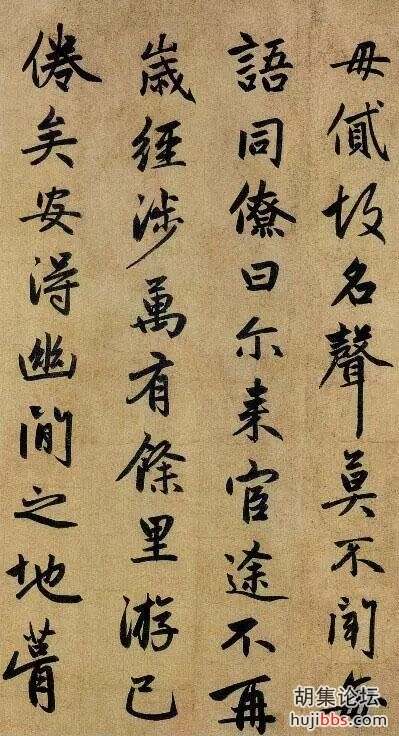 毋貸故名聲莫不聞每
語同僚曰尔来宦途不再
歲經涉萬有餘里游已
倦矣安得幽閒之地葺
胡集论坛
hujibbs.com